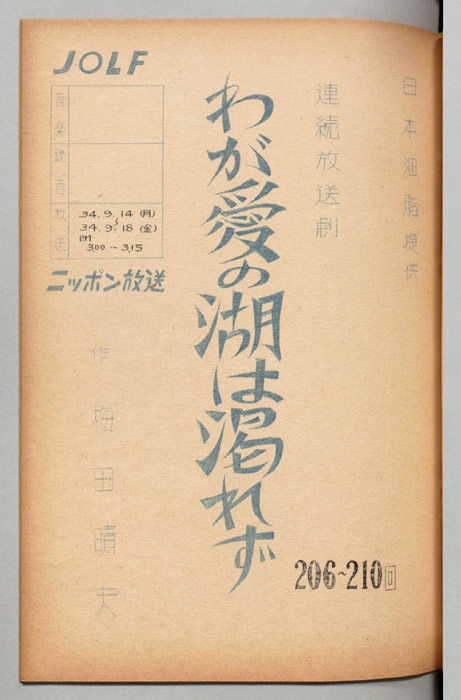 日本油脂提供
連続放送劇
わが愛の湖は渇れず
206~210回
JOLF
音楽
録音
放送
34.9.14(月)
~
34.9.18(金)
PM
3.00~3.15
ニッポン放送
作 梅田晴夫